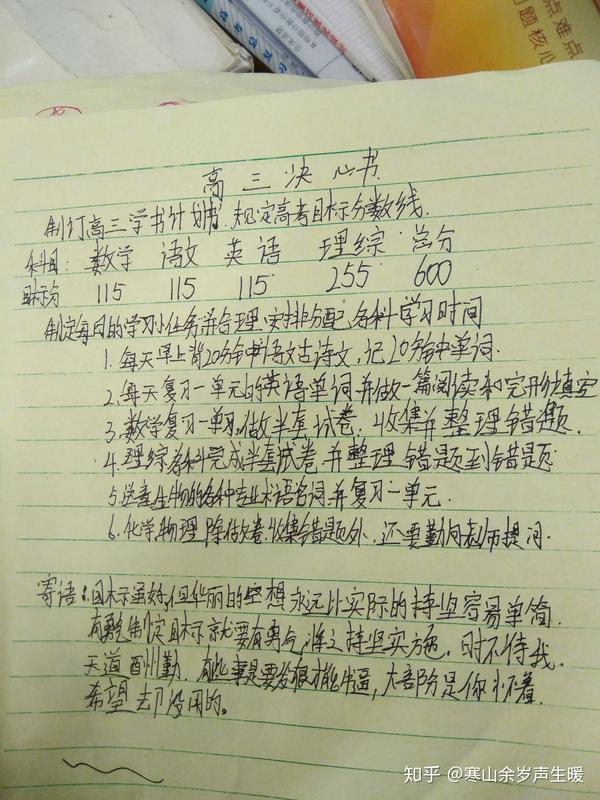 点难点
题核心
高三决心书
制订高三学书计划书、规定高考目标分数线.
科目: 数学 语文 英语 理综 总分
目标分 115 115 115 255 600
制定每日的学习小任务并合理安排分配各科学习时间
1. 每天早上背20分钟书语文古诗文,记20分钟单词.
2. 每天复习一单元的英语单词并做一篇阅读和完形填空
3. 数学复习一单习,做半套试卷.收集并整理错题.
4. 理综各科完成半套试卷并整理错题到错题
5. 生物的各种专业术语名词并复习一单元.
6. 化学物理除做卷.收集错题外、还要勤向老师提问.
寄语:目标虽好,但华丽的空想永远比实际的持坚容易单简.
有勇气制定目标就要有勇气将之持坚实施,时不待我.
天道酬勤.有些事是要发狠才能,大部分是你怀着.
希望却没用的。
知乎 @寒山余岁声生暖